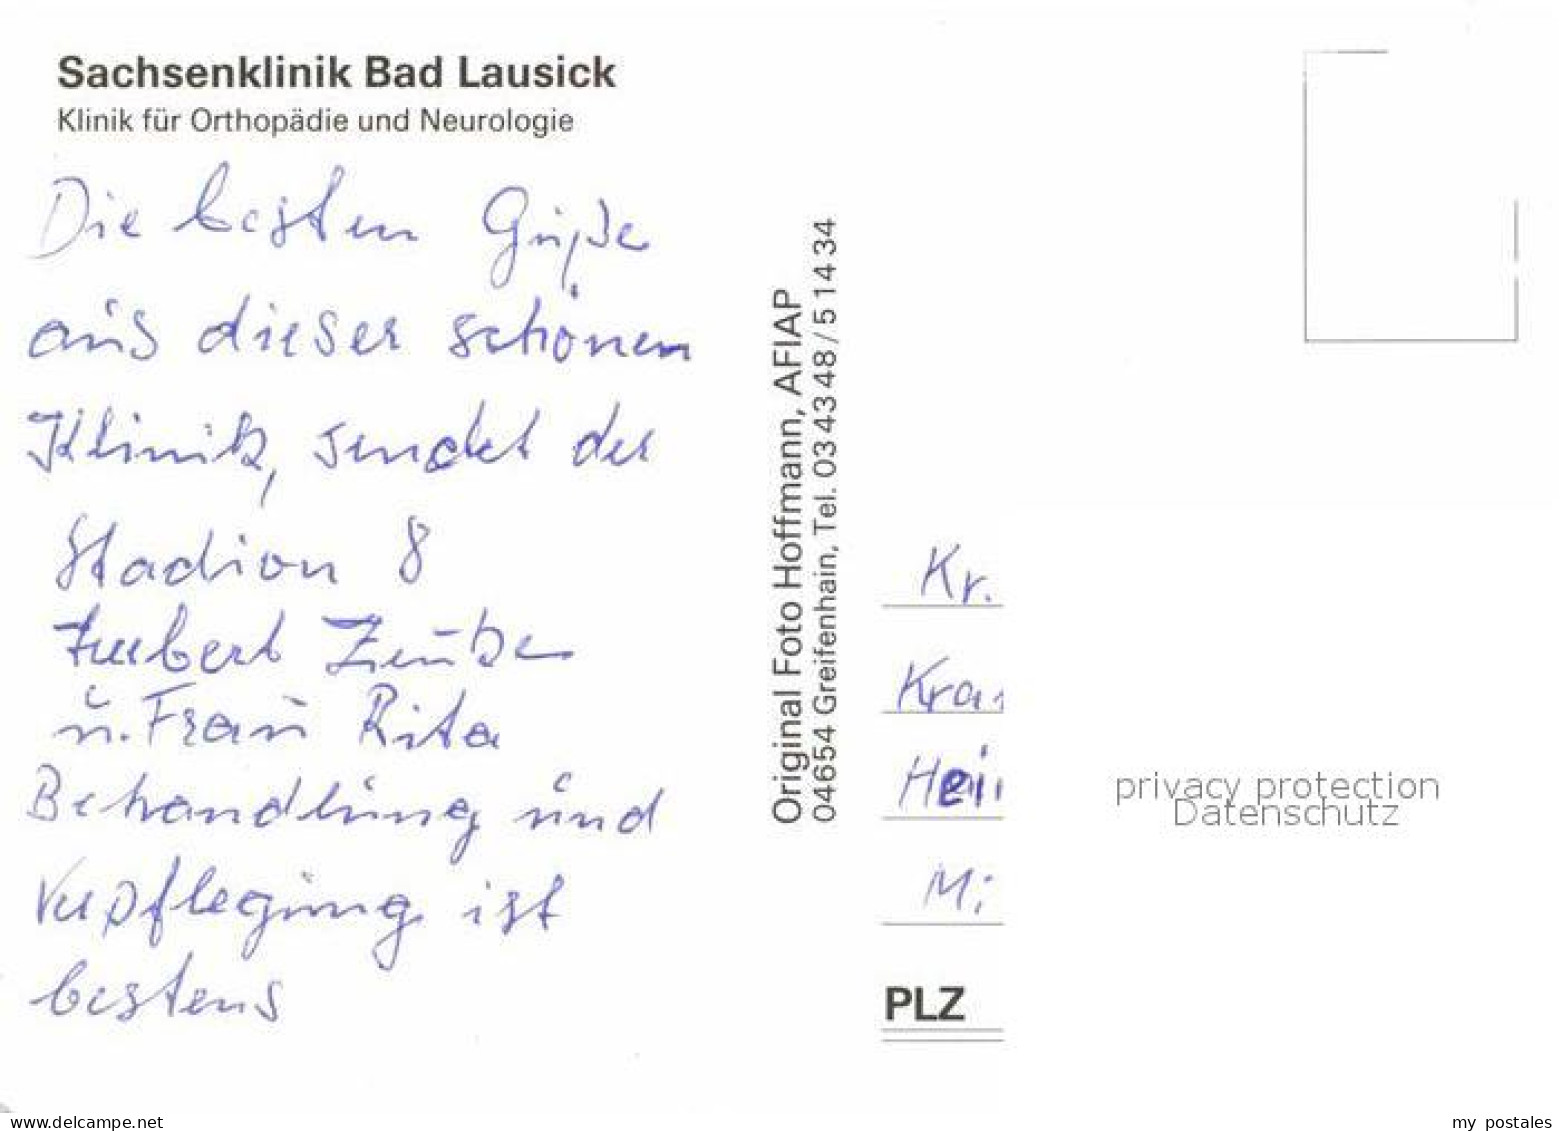 Sachsenklinik Bad Lausick
Klinik für Orthopädie und Neurologie
Die besten Grüße
aus dieser schönen
Klinik, sendet der
Stadion 8
Hubert
u. Frau Rita
Behandlung und
Verpflegung ist
bestens
Original Foto Hoffmann, AFIAP
04654 Greifenhain, Tel. 03 43 48 / 5 14 34
Kr.
Kra
Hei
Mi
PLZ
privacy protection
Datenschutz
www.delcampe.net
my_postales